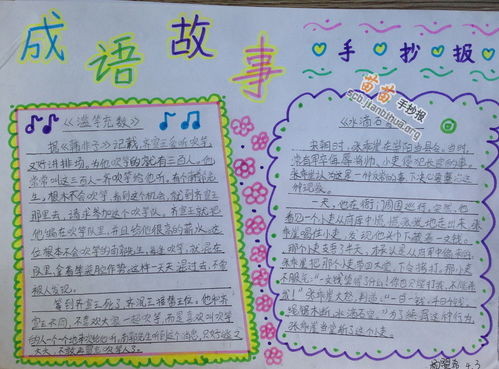 成语故事
手抄报
苗苗手抄报
scb.jianbihua.org
《滥竽充数》
据《韩非子》记载,齐宣王爱听吹竽,
又好讲排场,为他吹竽的就有三百人。他
常常叫这三百人一齐吹竽给他听。有个南郭先
生,根本不会吹竽,看到这个机会,就到齐宣王
那里去,请求参加这个吹竽队。齐宣王就把
他编在吹竽队里,并且给他很高的薪水。这
位根本不会吹竽的南郭先生,每逢吹竽,就混在
队里,拿着竽装腔作势。这样一天天混过去,不曾
被人发现。
等到齐宣王死了,齐湣王接替王位。他和齐
宣王不同,不喜欢大家一起吹竽,而是喜欢叫吹竽
的人一个一个
《水滴石穿》
宋朝时,张乖崖在崇阳当县令。当时,
常有军卒侮辱将帅、小吏侵犯长官的事。
张乖崖认为这是一种反常的事,下决心要整治这
种现象。
一天,他在衙门周围巡行。突然,他
看见一个小吏从府库中
崖喝住小吏,发现他头巾下藏着一文钱。
那个小吏支吾了半天,才承认是从府库中偷来的。
张乖崖把那个小吏带回大堂,下令拷打。那小吏
不服气:“一文钱有什么了不起!你也只能打我,不能杀
我!”张乖崖大怒,判道:“一日一钱,千日千钱,
绳锯木断,水滴石穿。”为了惩罚这种行为,
张乖崖当堂斩了这个小吏。
4.3